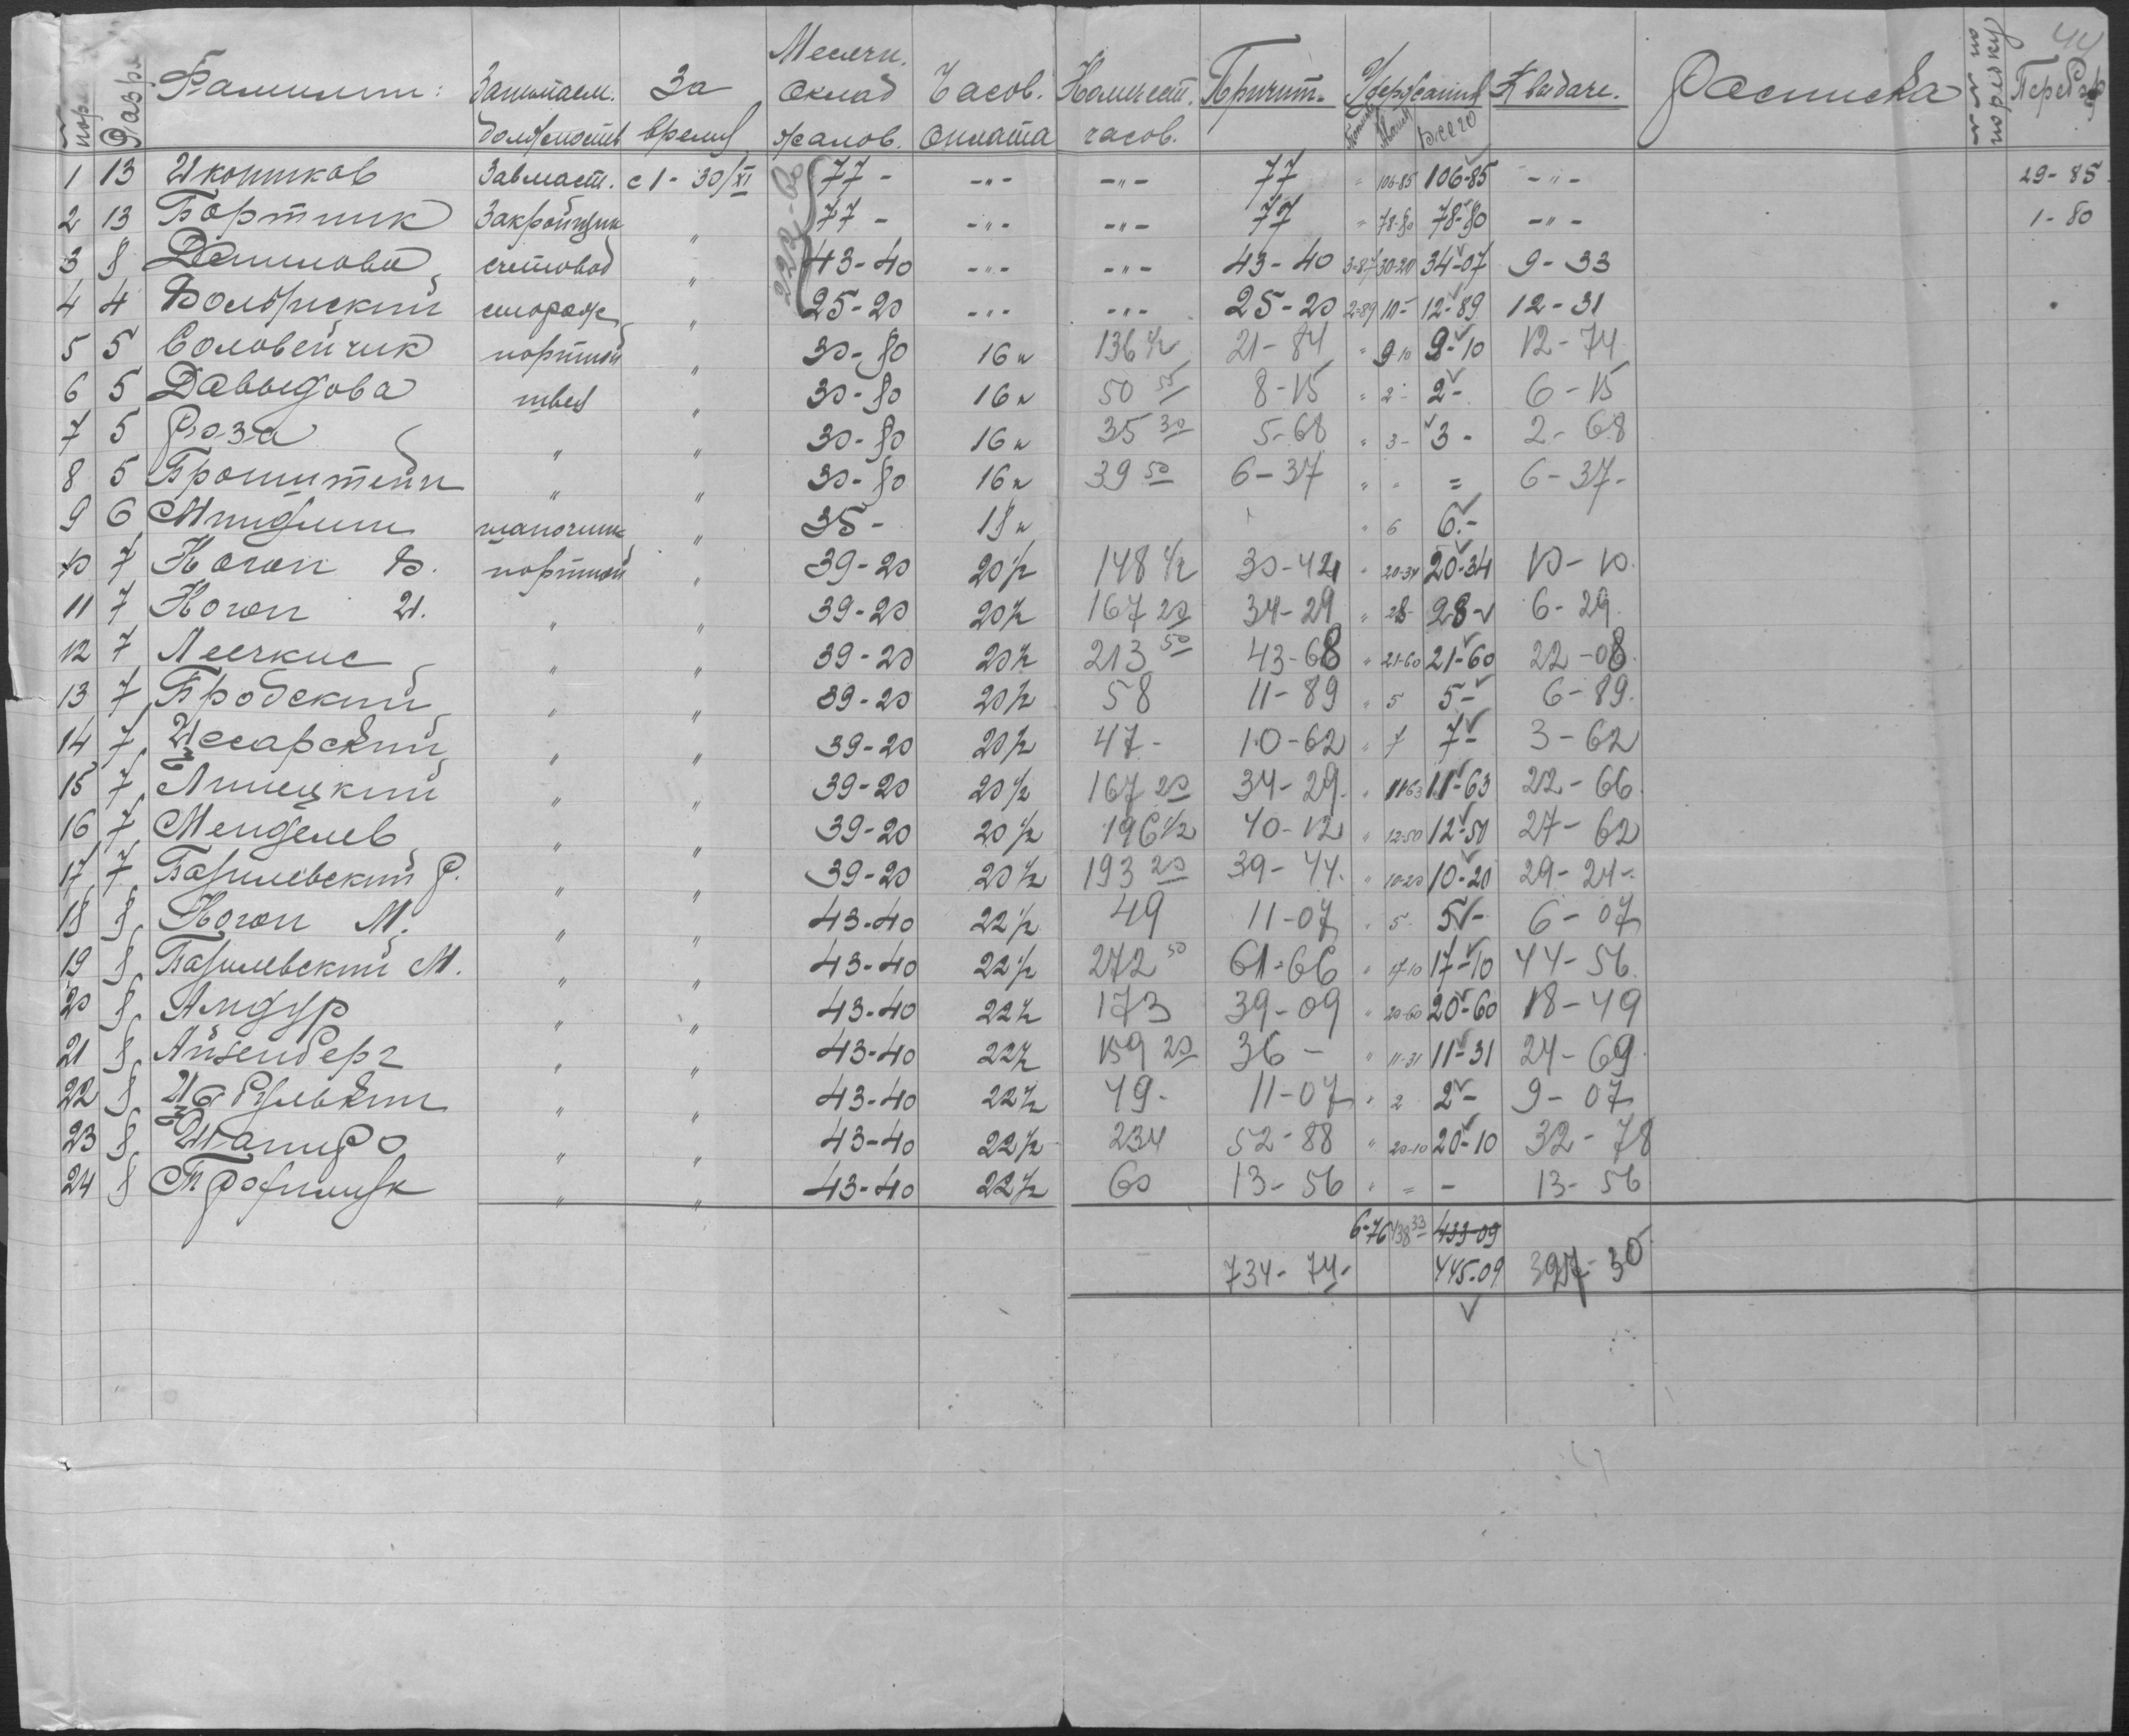 44
Фамилии: Занимаем. должность За время Месячн. Оклад жалов. Часов. оплата Количест. часов. Причит. Удержания Всего К выдаче. Расписка №№ по порядку Перебор
1 13 Иконников Завмаст. с 1 - 30/XI 77 - -"- -"- 77 " 106-85 106-85 -"- 29-85
2 13 Бортник Закройщик " 77 - -"- -"- 77 " 78-80 78-80 -"- 1-80
3 8 Данилова счетовод " 43-40 -"- -"- 43-40 3-87 30-20 34-07 9-33
4 4 сторож " 25-20 -"- -"- 25-20 2-89 10- 12-89 12-31
222-60
5 5 Соловейчик портной " 30-80 16 к 136 1/2 21-84 " 9-10 9-10 12-74
6 5 Давыдова швея " 30-80 16 к 50 55 8-15 " 2- 2- 6-15
7 5 Роза " " 30-80 16 к 35 30 5-68 " 3- 3- 2-68
8 5 Бронштейн " " 30-80 16 к 39 50 6-37 " - = 6-37-
9 6 Миндлин шапочник " 35- 18 к " 6 6-
10 7 Коган Б. портной " 39-20 20 1/2 148 1/2 30-44 " 20-34 20-34 10-10
11 7 Коган И. " " 39-20 20 1/2 167 20 34-29 " 28- 28- 6-29
12 7 " " 39-20 20 1/2 213 50 43-68 " 21-60 21-60 22-08
13 7 Бродский " " 39-20 20 1/2 58 11-89 " 5 5- 6-89
14 7 " " 39-20 20 1/2 47- 10-62 " 7 7- 3-62
15 7 Липецкий " " 39-20 20 1/2 167 20 34-29 " 11-63 11-63 22-66
16 7 Менделев " " 39-20 20 1/2 196 1/2 40-12 " 12-50 12-50 27-62
17 7 Базилевский Р. " " 39-20 20 1/2 193 20 39-44 " 10-20 10-20 29-24-
18 8 Коган М. " " 43-40 22 1/2 49 11-07 " 5 5- 6-07
19 8 Базилевский М. " " 43-40 22 1/2 272 50 61-66 " 17-10 17-10 44-56
20 8 Амдур " " 43-40 22 1/2 173 39-09 " 20-60 20-60 18-49
21 8 Айзенберг " " 43-40 22 1/2 159 20 36- " 11-31 11-31 24-69
22 8 " " 43-40 22 1/2 49- 11-07 " 2 2- 9-07
23 8 Шапиро " " 43-40 22 1/2 234 52-88 " 20-10 20-10 32-78
24 8 " " 43-40 22 1/2 60 13-56 " = - 13-56
6-76 438 33 433-09
734-74- 445-09 397-30